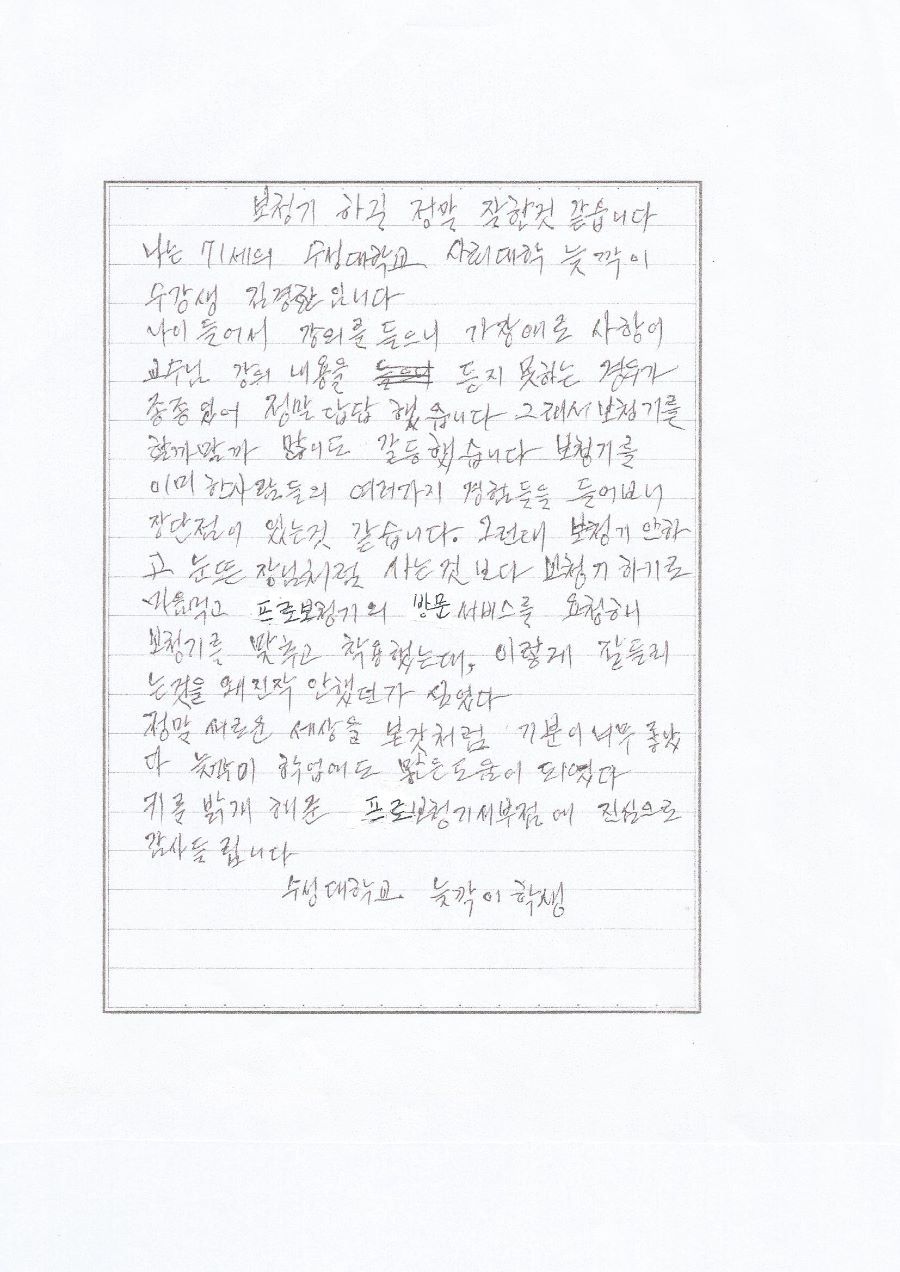 보청기 하길 정말 잘한것 같읍니다
나는 71세의 수성대학교 사회대학 늦깍이
수강생 김경환입니다
나이 들어서 강의를 들으니 가장애로 사항이
교수님 강의 내용을 듣지 못하는 경우가
종종있어 정말 답답 했습니다 그래서 보청기를
할까말까 많이도 갈등했습니다 보청기를
이미 한사람들의 여러가지 경험들을 들어보니
장단점이 있는것 같습니다. 그런대 보청기 안하
고 눈뜬 장님처럼 사는것 보다 보청기 하기로
마음먹고 프로보청기의 방문 서비스를 요청해
보청기를 맞추고 착용했는데, 이렇게 잘들리
는것을 왜진작 안했던가 싶었다
정말 새로운 세상을 본것처럼 기분이 너무 좋았
다 늦깍이 학업에도 많은도움이 되였다
귀를 밝게 해준 프로보청기서부점에 진심으로
감사를 드립니다
수성대학교. 늦깍이 학생